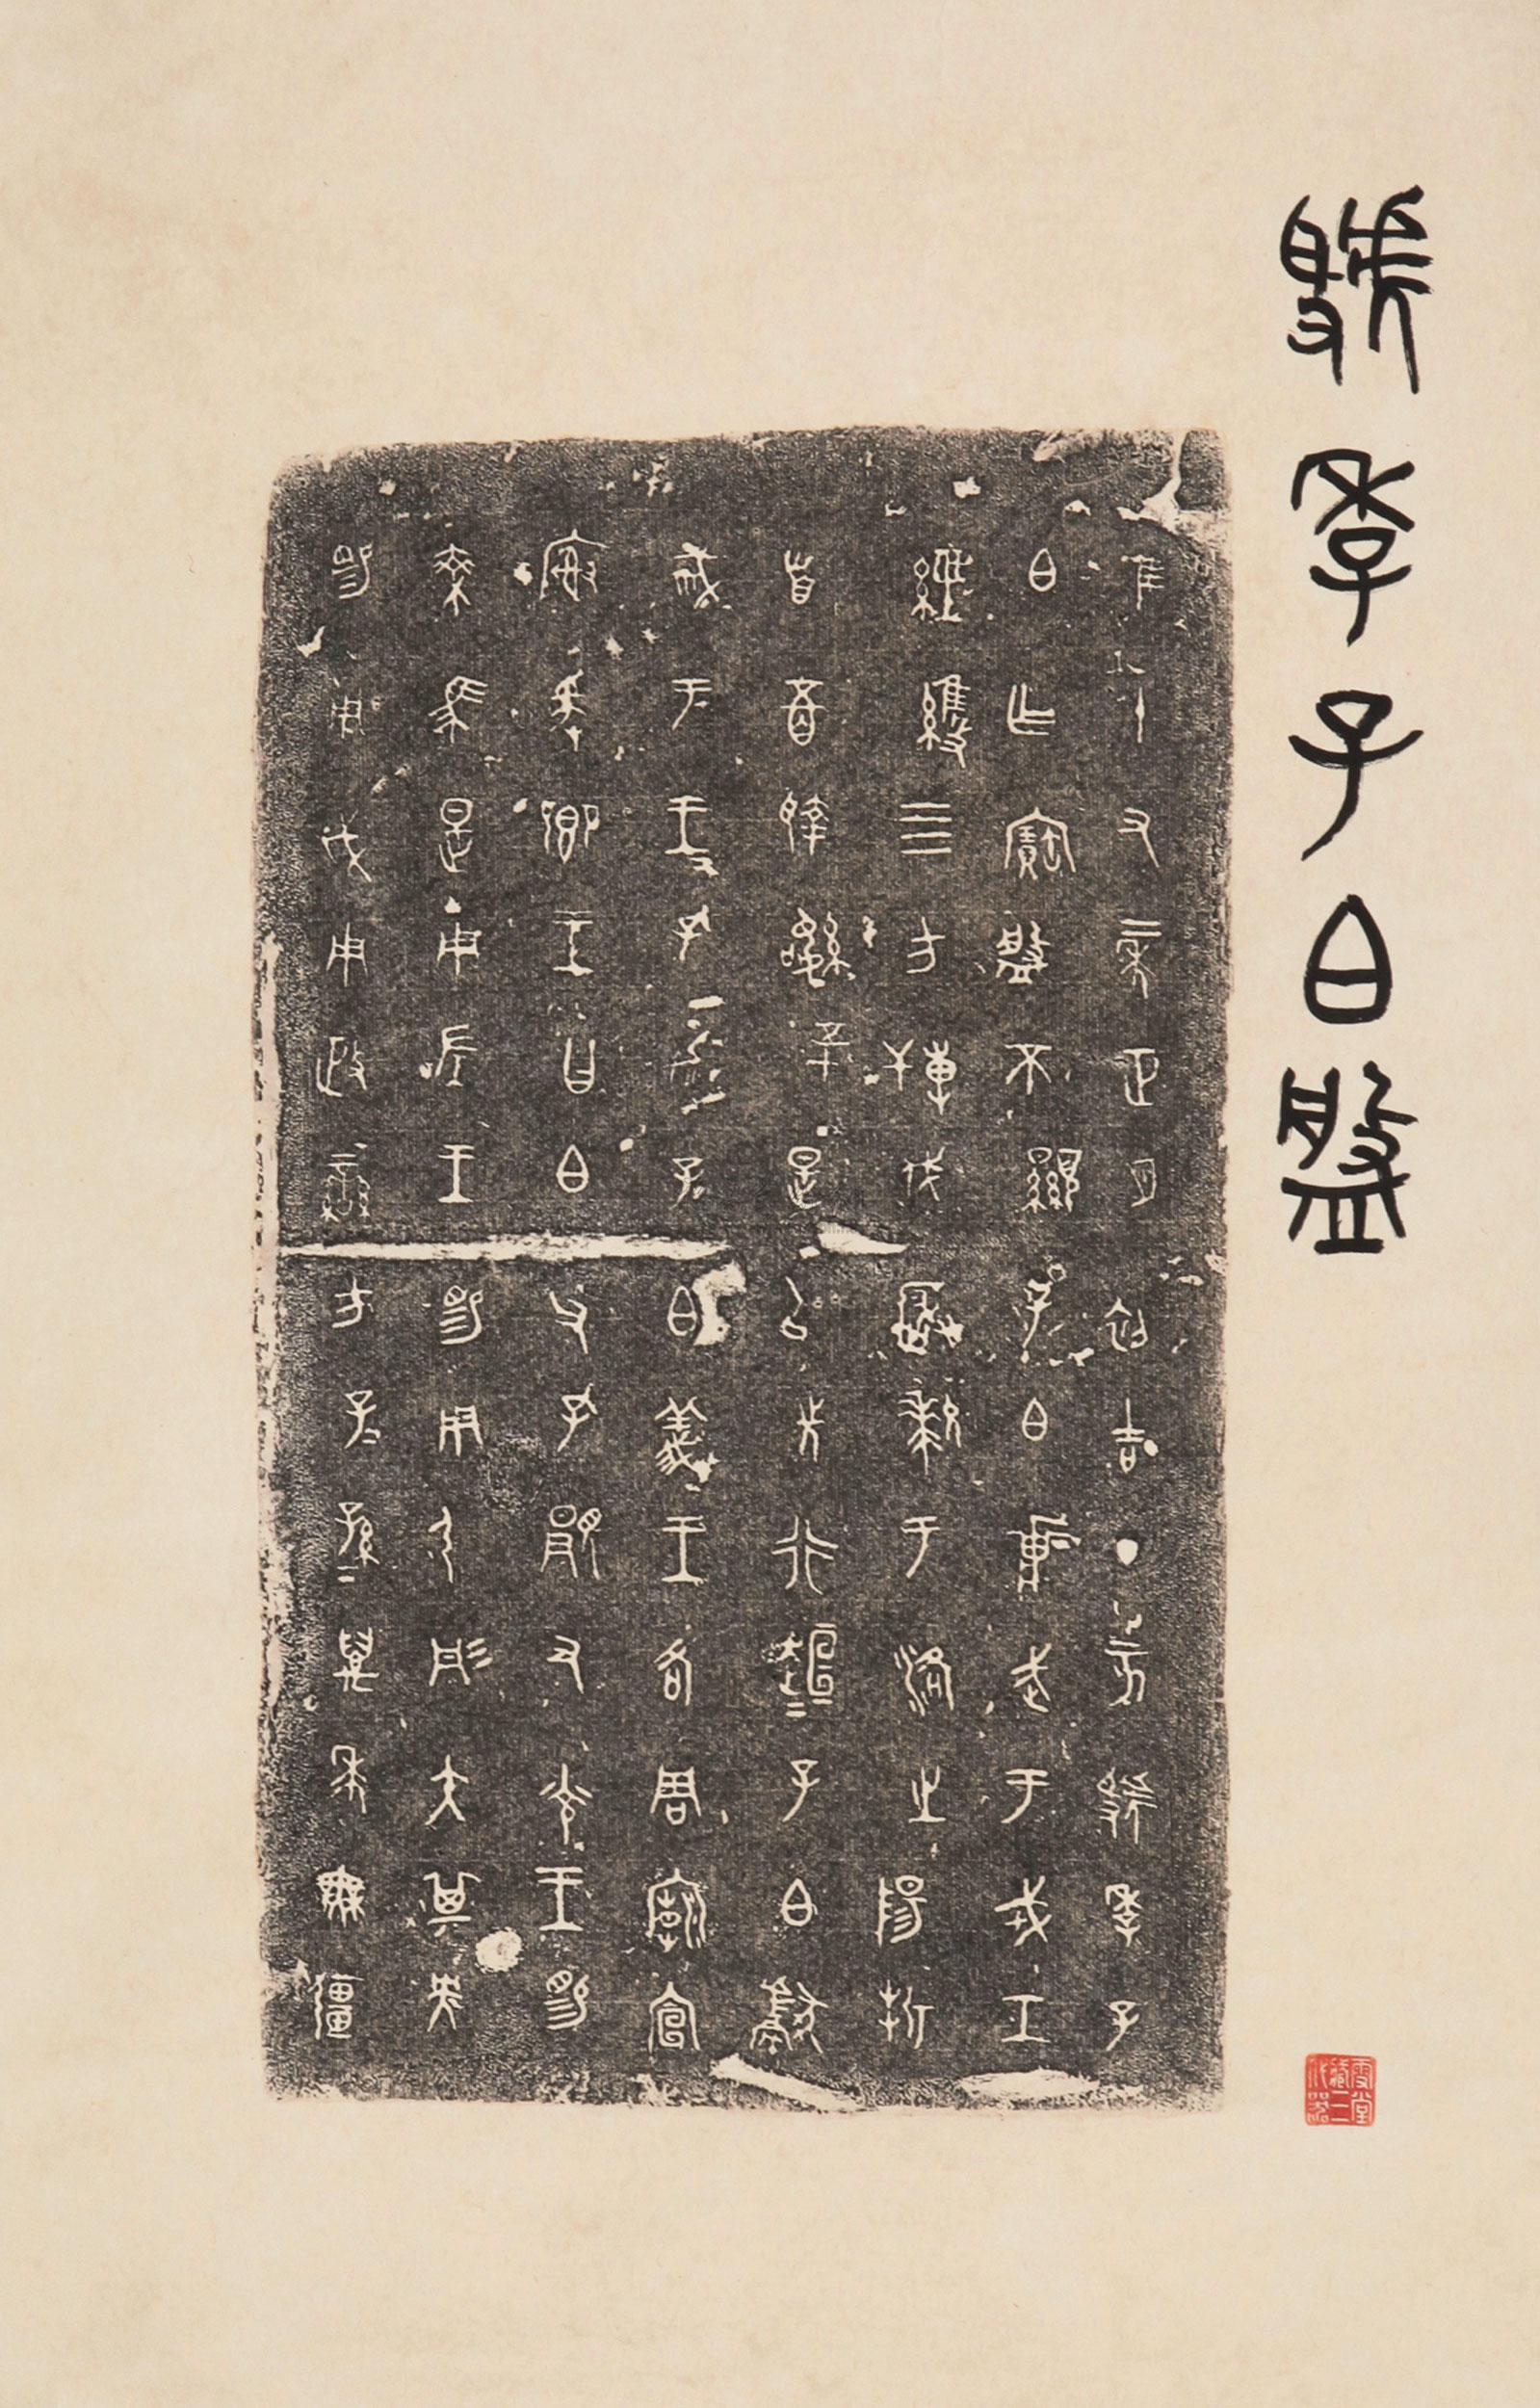 虢季子白盤
隹十又二年正月初吉丁亥虢季子
白乍寶盤不顯子白壯武于戎工
經維四方搏伐玁狁于洛之陽折
首五百執訊五十是以先行桓=子白獻
馘于王=孔加子白義王各周廟宣
榭爰鄉王曰白父孔顯又光王睗
乘馬是用左王睗用弓彤矢其央
睗用戉用政蠻方子=孫=萬年無疆